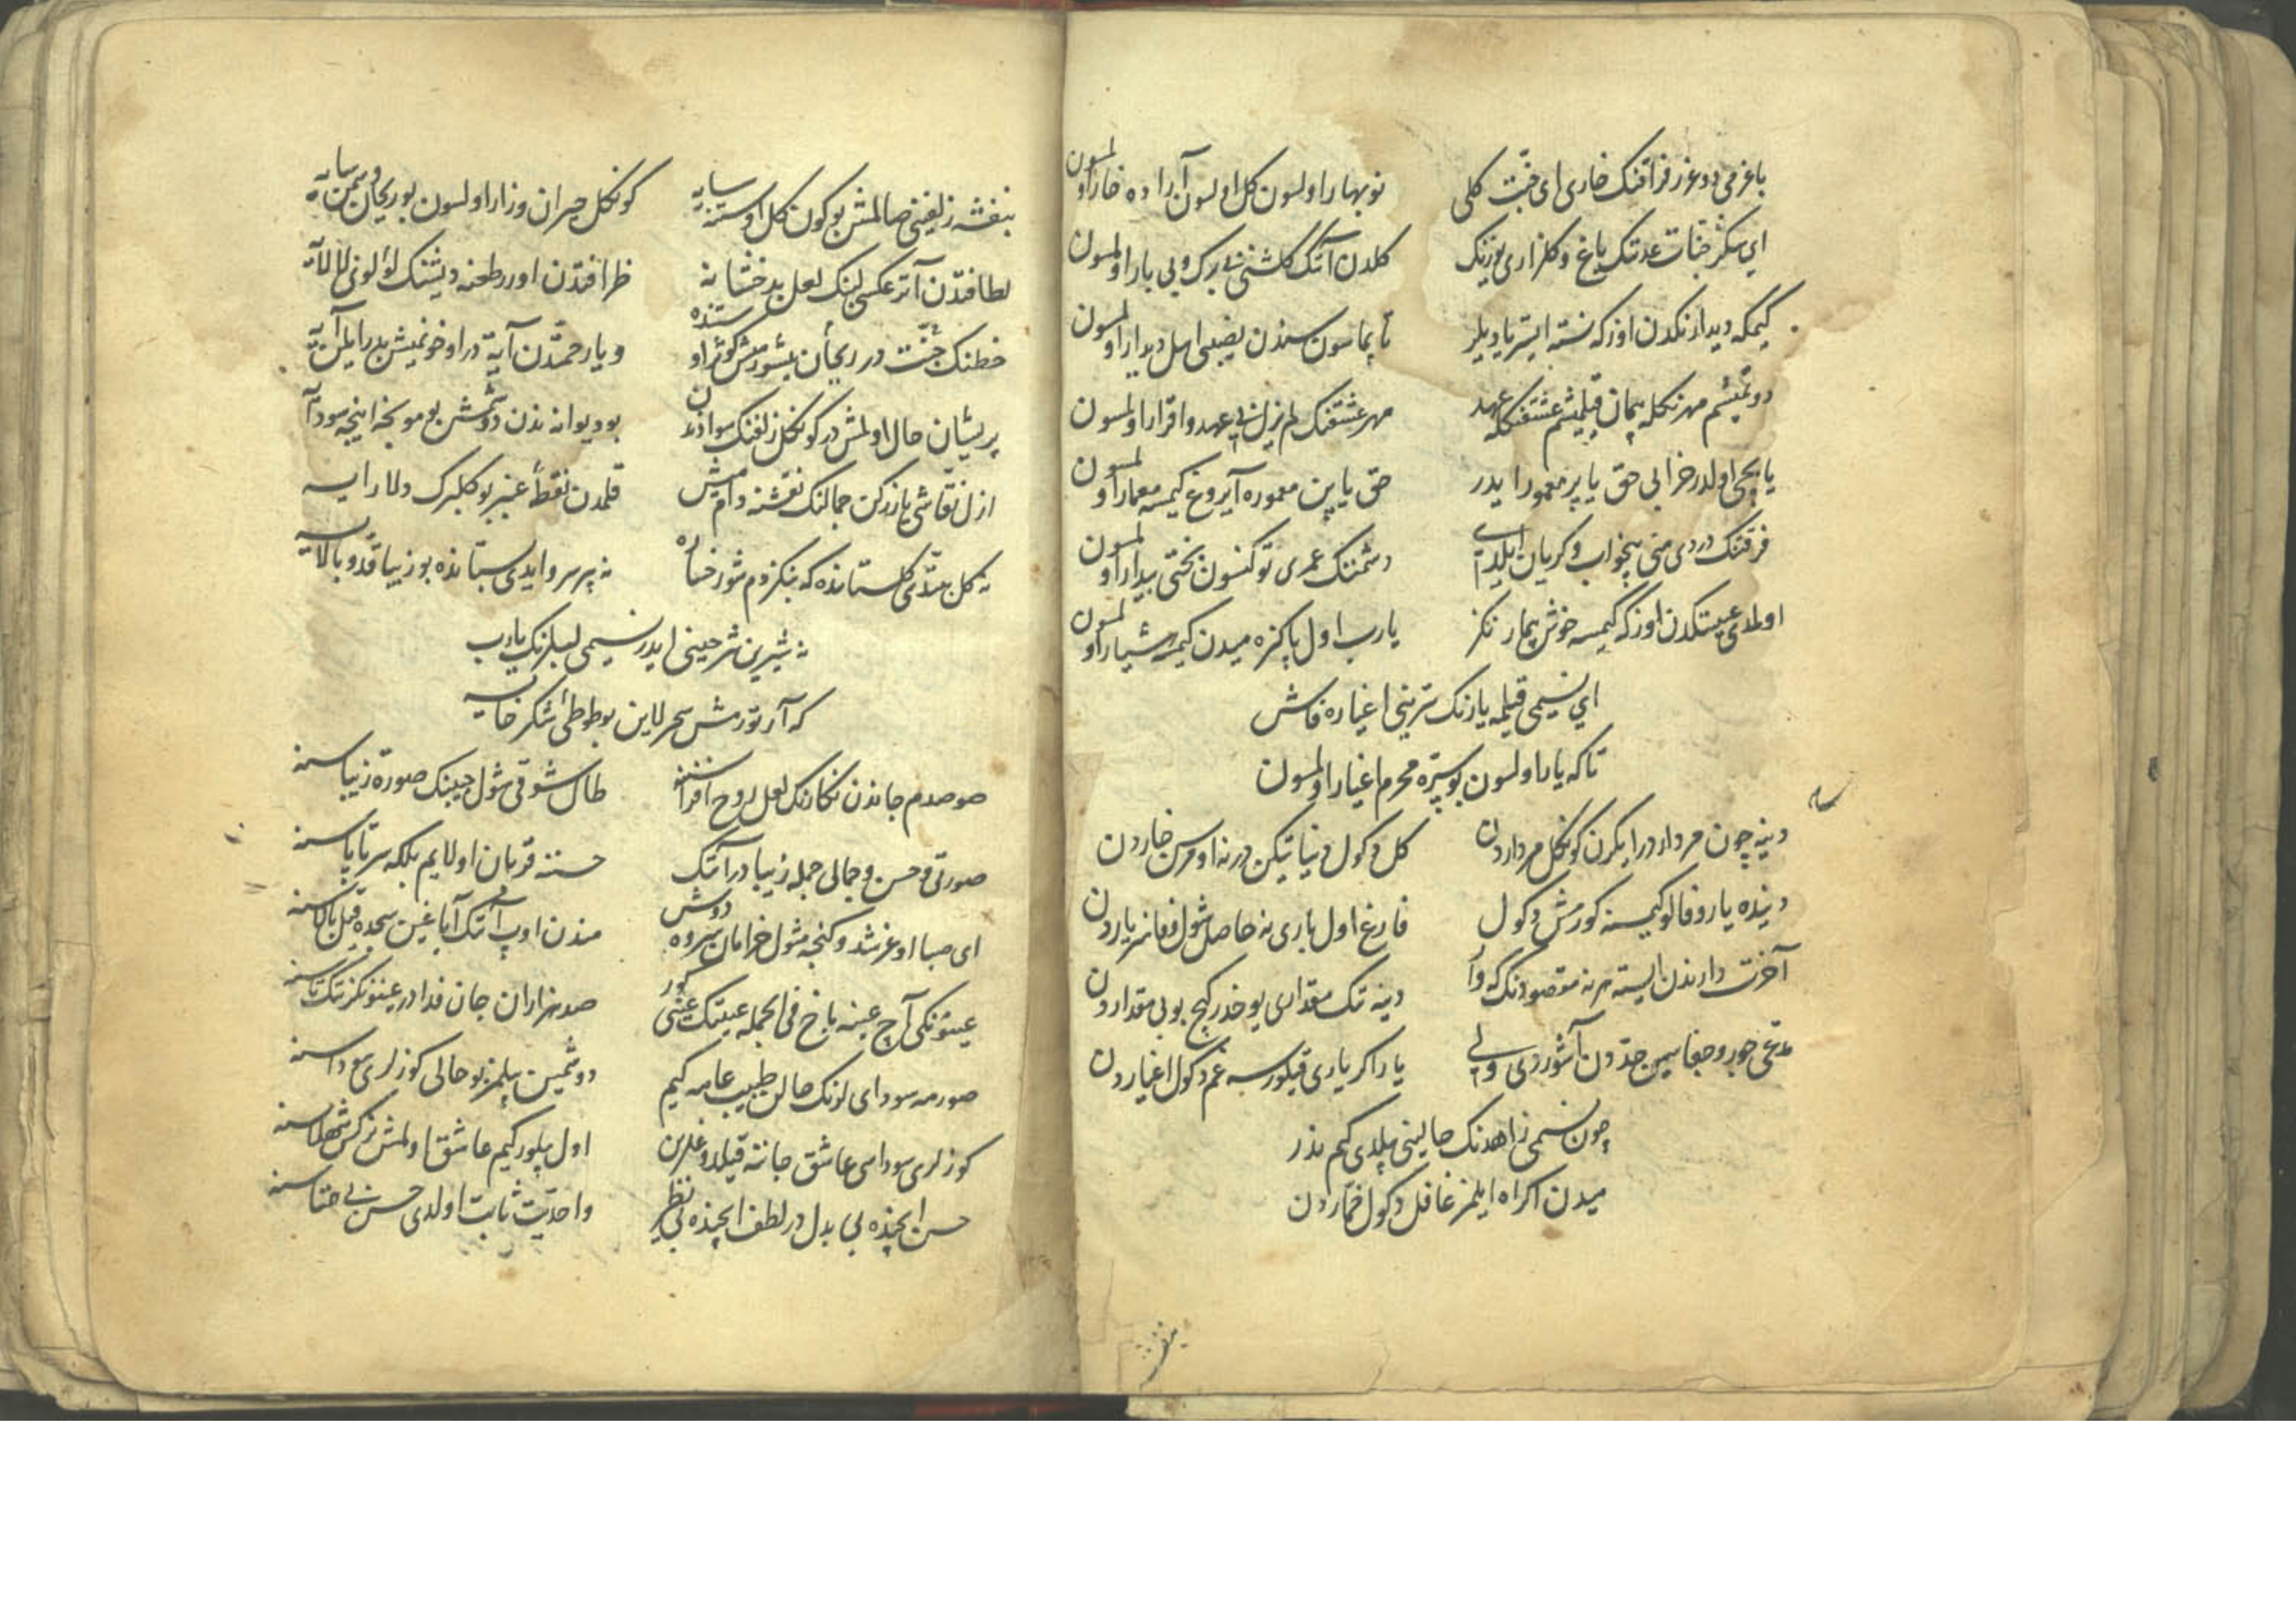 باغرمی دوغرر فراقنک خاری ای جنت کلی نوبهار اولسون کل اولسون آرا ده خار اولمسون
ای سکز جنات عدنک باغ و کلزاری یوزنک کلدن آنک کلشنی بی برک و بی بار اولمسون
کیمکه دیدارنکدن اوزکه نسنه ایستر یا دیلر تاپماسون سندن نصیبی اهل دیدار اولمسون
دوتمیشم مهرنکله پیمان قیلمیشم عشقنکله عهد مهر عشقنک لم یزل بی عهد و اقرار اولمسون
یاپچی اولدر خرابی حق یاپر معمور ایدر حق یاپن معموره آیروغ کیمسه معمار اولمسون
فرقتنک دردی منی بیخواب و کریان ایلدی دشمننک عمری توکنسون بختی بیدار اولمسون
اولمدی عینکدن اوزکه کیمسه خوش بیمارنکز یارب اول پاکیزه میدن کیمسه هشیار اولمسون
ای نسیمی قیلمه یارنک سرینی اغیاره فاش
تاکه یار اولسون بو سره محرم اغیار اولمسون
دنیه چون مرداردر ایکرن کونکل مرداردن کل دکول دنیا تیکن در نه اومرسن خاردن
دنیده یار وفالو کیمسنه کورمش دکول فارغ اول باری نه حاصل شول وفاسز یاردن
آخرت دارندن ایسته هر نه مقصودنک که وار دنیه تک مقداری یوخدر کیچ بو بی مقداردن
مدعی جور و جفاسین حددن آشوردی ولی یار اکر یاری قیلورسه غم دکول اغیاردن
چون نسیمی زاهدنک حالینی بیلدی کیم ندر
میدن اکراه ایلمز غافل دکول خماردن
بنفشه زلفینی صالمش بو کون کل اوستنه سایه کونکل حیران و زار اولسون بو ریحان و سمن سایه
لطافتدن آتر عکسی لبنک لعل بدخشانه ظرافتدن اورر طعنه دیشنک لؤلؤنی لالایه
خطنک جنت در ریحان بیتورمش کوثر اوستنده و یا رحمتدن آیة در اوخونمیش بدرایلن آیه
پریشان حال اولمش در کونکل زلفنک سوادندن بو دیوانه ندن دوشمش بو مونجه اینجه سودایه
ازل نقاشی یازرکن جمالنک نقشنه دامش قلمدن نقطهٔ عنبر بو کلبرک دلارایه
نه کل بتدی کلستانده که بنکزر م شو رخساره نه بیر سرو ایدی بستانده بو زیبا قد و بالایه
نه شیرین شرحینی ایدر نسیمی لبلرنک یارب
که آرتورمش سحرلاین بو طوطئ شکرخایه
صوصدم جاندن نکارنک لعل روح افزاسنه طال شوقی شول حبینک صورة زیباسنه
صورتی و حسن و جمالی جمله زیبادر آنک حسننه قربان اولایم بلکه سر تا پاسنه
ای صبا اوغرشدوکنجه شول خرامان سروه دوش مندن اوپ آنک آیاغین سجده قیل بالاسنه
عینونکی آچ عینه باخ فی الجمله عینک عینی کور صد هزاران جان فدادر عینونکزنک تاسنه
صورمه سودای لونک حالن طبیب عامه کیم دوشمیین بیلمز بو حالی کوزلری سوداسنه
کوزلری سوداسی عاشق جاننه قیلدوغلرین اول بیلور کیم عاشق اولمش نرکس شهلاسنه
حسن ایچنده بی بدل در لطف ایچنده بی نظیر واحدیت ثابت اولدی حسن بی همتاسنه
بنفشه